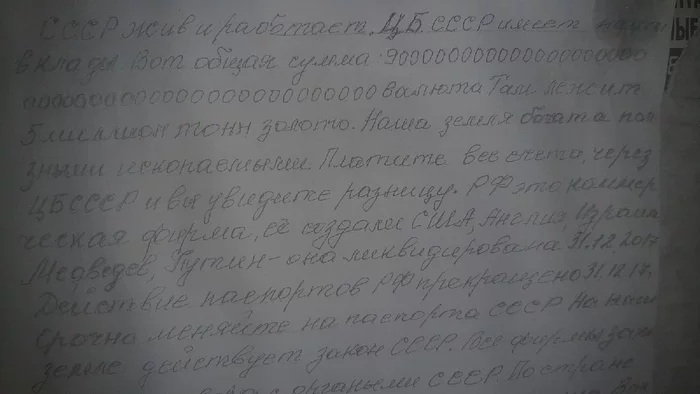 СССР жив и работает. ЦБ СССР имеет наши
вклады. Вот общая сумма: 9000000000000000000000
0000000000000000000000000000 валюта Там лежит
5 миллион тонн золото. Наша земля богата пол
зными ископаемыми. Платите все счета, через
ЦБ СССР и вы увидите разницу. РФ это коммер
ческая фирма, её создали США, Англия, Израиль
Медведев, Путин - она ликвидирована 31.12.2017
Действие паспортов РФ прекращено 31.12.17.
Срочно меняйте на паспорта СССР На нашей
земле действует закон СССР. Все фирмы
органыими СССР. По стране